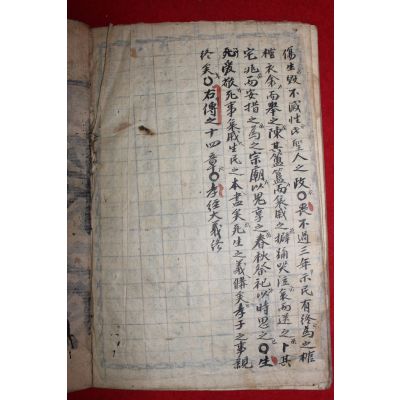 傷生毀不滅性此聖人之政〇喪不過三年示民有終為之棺
椁衣衾而擧之陳其簠簋而哀慼之擗踊哭泣哀而送之卜其
宅兆而安措之為之宗廟以鬼享之春秋祭祀以時思之〇生
事愛敬死事哀慼生民之本盡矣死生之義備矣孝子之事親
終矣〇右傳之十四章〇孝經大義終